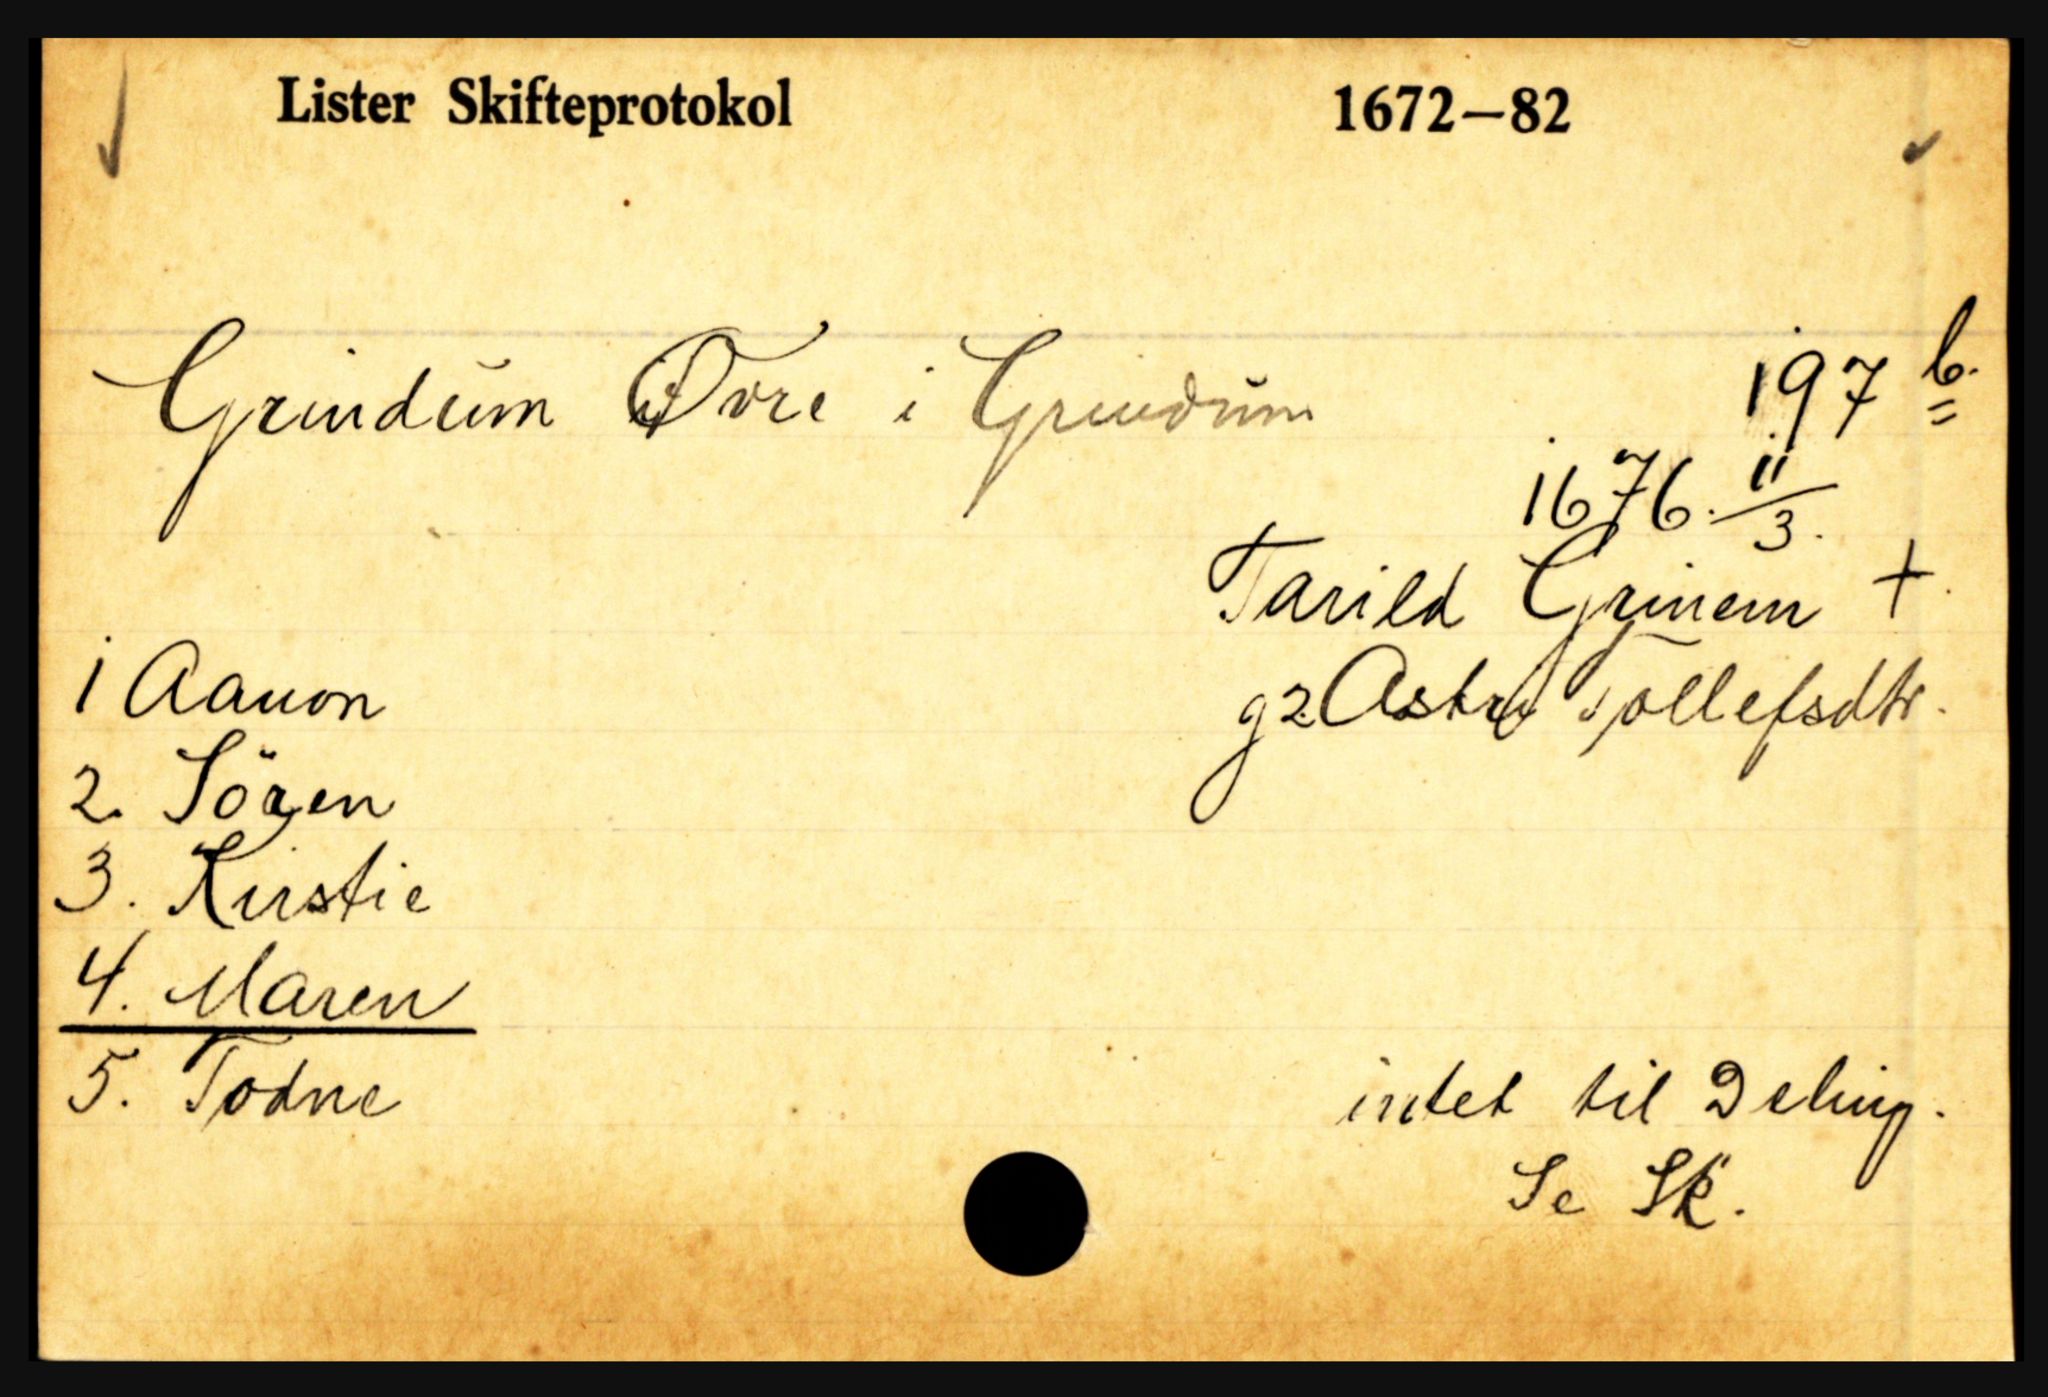 Lister Skifteprotokol 1672–82
Grindum Øvre i Grindum 197 b.
1676. 11/3.
Tarild Grinem +
g2 Astri Tollefsdtr.
1 Aanon
2. Sören
3. Kirstie
4. Maren
5. Todne
intet til Deling.
Se Sk.